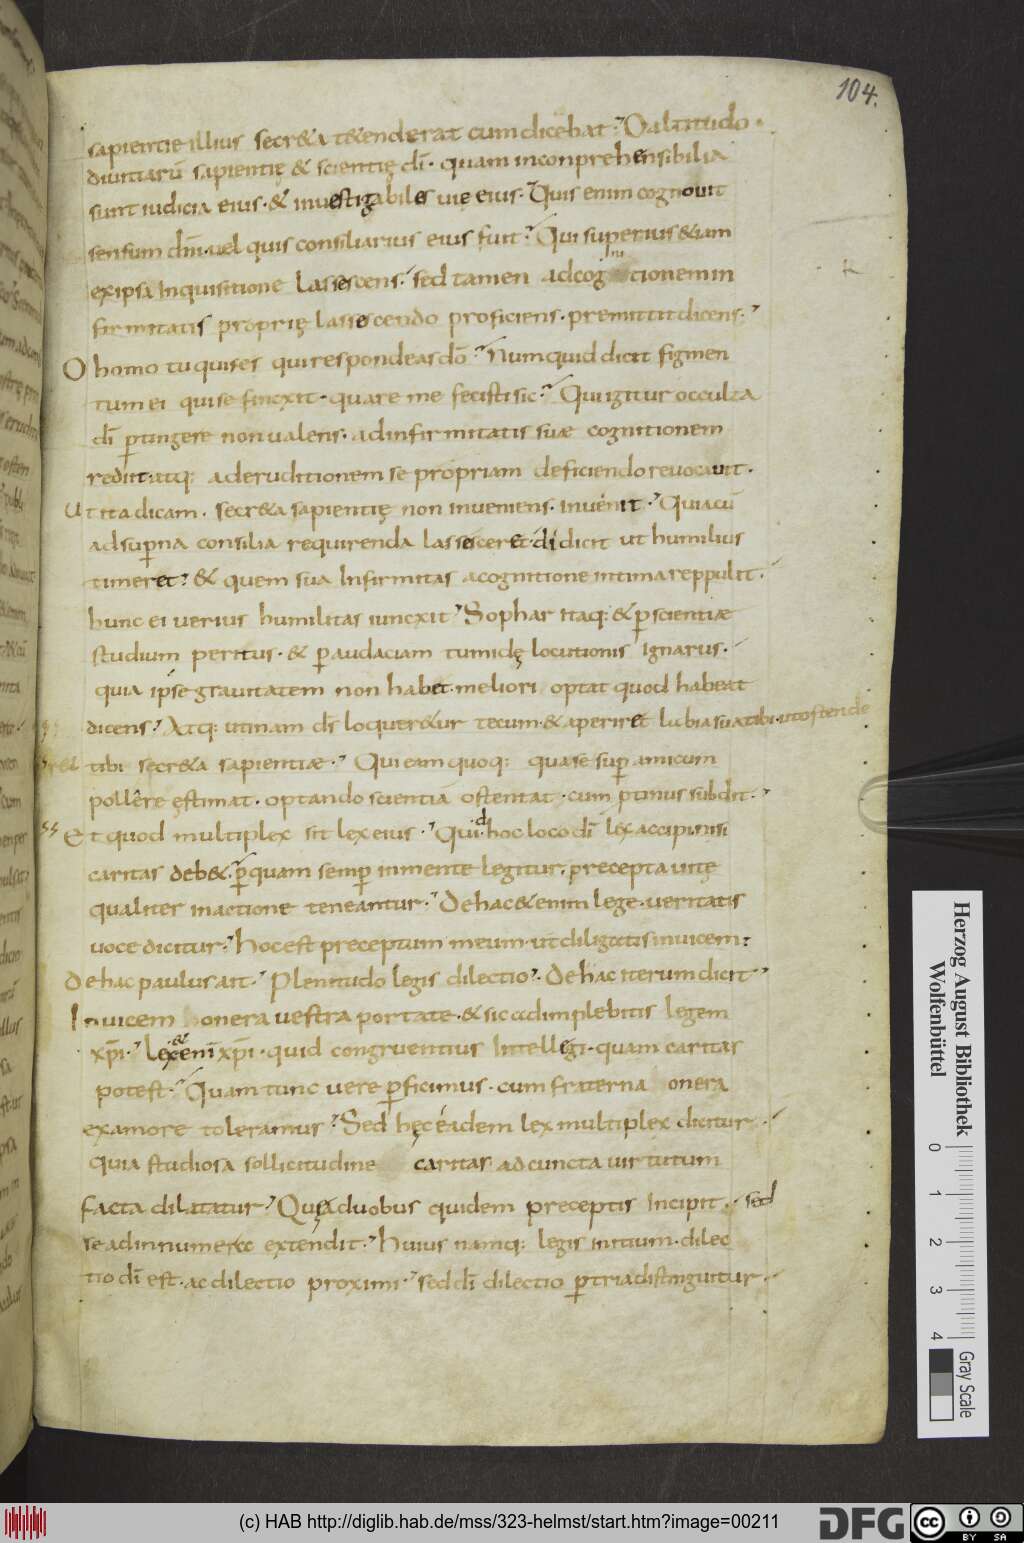 104.
sapientie illius secr&a t&enderat cum dicebat. O altitudo
diuitiarū sapientię & scientię dī. quam inconprehensibilia
sunt iudicia eius. & inuestigabiles uie eius. Quis enim cognouit
sensum dn̄i. uel quis consiliarius eius fuit? Qui superius &iam
ex ipsa Inquisitione Lassescens. sed tamen ad cognitionem in
firmitatis proprię lassescendo proficiens. premittit dicens.
O homo tu quis es qui respondeas dō. Numquid dicit figmen
tum ei qui se fincxit. quare me fecisti sic? Qui igitur occulta
dī ptingere non ualens. ad infirmitatis suae cognitionem
rediit. atq: ad eruditionem se propriam deficiendo reuocauit.
Ut ita dicam. secr&a sapientię non inueniens. inuenit. Quia cū
ad supna consilia requirenda lassesceret. didicit ut humilius
timeret. & quem sua Infirmitas a cognitione intima reppulit.
hunc ei uerius humilitas iuncxit. Sophar itaq: & p scientiae
studium peritus. & p audaciam tumidę locutionis Ignarus.
quia ipse grauitatem non habet. meliori optat quod habeat
dicens. Atq: utinam ds̄ loquer&ur tecum. & aperiret labia sua tibi. ut ostende
r&tibi secr&a sapientiae. Qui eam quoq: quase sup amicum
pollêre ęstimat. optando scientiā ostentat. cum ptinus subdit.
Et quod multiplex sit lex eius. Quid hoc loco dī lex accipi nisi
caritas deb&. p quam semp in mente legitur. precepta uitę
qualiter in actione teneantur. De hac &enim lege. ueritatis
uoce dicitur. Hoc est preceptum meum. ut diligatis inuicem.
De hac paulus ait. Plenitudo legis dilectio. De hac iterum dicit
Inuicem onera uestra portate. & sic adimplebitis legem
xp̄i. Lex &enī xp̄i. quid congruentius Intellegi. quam caritas
potest. Quam tunc uere pficimus. cum fraterna onera
ex amore toleramus. Sed hęc eadem lex multiplex dicitur.
quia studiosa sollicitudine caritas ad cuncta uirtutum
facta dilatatur. Quę & duobus quidem preceptis Incipit. sed
se ad innumera extendit. Huius namq: legis initium. dilec
tio dī est. ac dilectio proximi. sed dī dilectio p tria distinguitur.
Herzog August Bibliothek
Wolfenbüttel
0 1 2 3 4
Gray Scale
(c) HAB http://diglib.hab.de/mss/323-helmst/start.htm?image=00211
DFG
cc BY SA